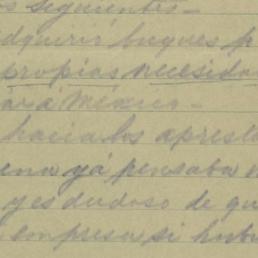 os siguientes—
dquirir buques p
propias necesida
ará México—
hacia los aprest
ena yá pensaba
y es dudoso de qu
empresa si hub